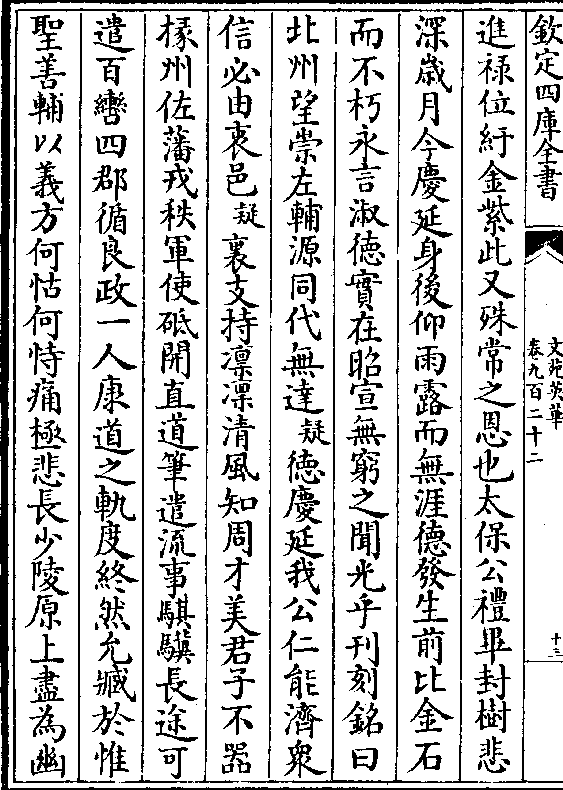 欽定四庫全書
文苑英華
卷九百二十二
十三
進祿位紆金紫此又殊常之恩也太保公禮畢封樹悲
深歲月今慶延身後仰雨露而無涯德發生前比金石
而不朽永言淑德實在昭宣無窮之聞光乎刊刻銘曰
北州望崇左輔源同代無達疑德慶延我公仁能濟衆
信必由衷邑疑裏支持凛凛清風知周才美君子不器
掾州佐藩戎秩軍使砥開直道筆遣流事騏驥長途可
遣百轡四郡循良政一人康道之軌度終然允臧於惟
聖善輔以義方何怙何恃痛極悲長少陵原上盡為幽